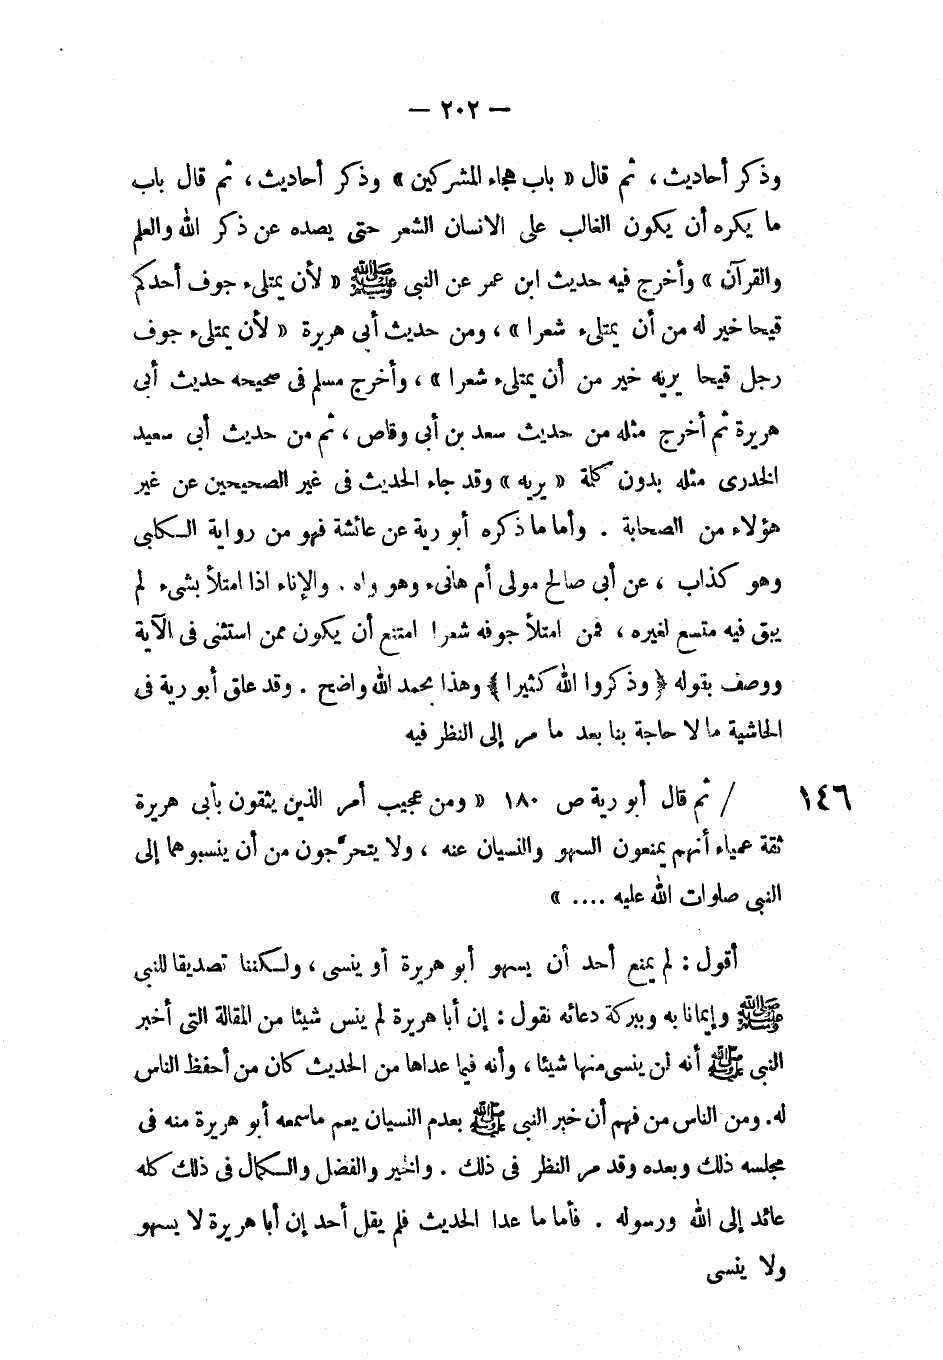 — ٢٠٢ —
وذكر أحاديث ، ثم قال « باب هجاء المشركين » وذكر أحاديث ، ثم قال باب
ما يكره أن يكون الغالب على الانسان الشعر حتى يصده عن ذكر الله والعلم
والقرآن » وأخرج فيه حديث ابن عمر عن النبى ﷺ « لأن يمتلىء جوف أحدكم
قيحا خير له من أن يمتلىء شعرا » ، ومن حديث أبى هريرة « لأن يمتلىء جوف
رجل قيحا يريه خير من أن يمتلىء شعرا » ، وأخرج مسلم فى صحيحه حديث أبى
هريرة ثم أخرج مثله من حديث سعد بن أبى وقاص ، ثم من حديث أبى سعيد
الخدرى مثله بدون كلمة « يريه » وقد جاء الحديث فى غير الصحيحين عن غير
هؤلاء من الصحابة . وأما ما ذكره أبو رية عن عائشة فهو من رواية الكلبى
وهو كذاب ، عن أبى صالح مولى أم هانىء وهو واه . والإناء اذا امتلأ بشىء لم
يبق فيه متسع لغيره ، فمن امتلأ جوفه شعرا امتنع أن يكون ممن استثنى فى الآية
ووصف بقوله ﴿ وذكروا الله كثيرا ﴾ وهذا بحمد الله واضح . وقد علق أبو رية فى
الحاشية ما لا حاجة بنا بعد ما مر إلى النظر فيه
١٤٦ / ثم قال أبو رية ص ١٨٠ « ومن عجيب أمر الذين يثقون بأبى هريرة
ثقة عمياء أنهم يمنعون السهو والنسيان عنه ، ولا يتحرّجون من أن ينسبوهما إلى
النبى صلوات الله عليه .... »
أقول : لم يمنع أحد أن يسهو أبو هريرة أو ينسى ، ولكننا تصديقا للنبى
ﷺ وإيمانا به وببركة دعائه نقول : إن أبا هريرة لم ينس شيئا من المقالة التى أخبر
النبى ﷺ أنه لن ينسى منها شيئا ، وأنه فيما عداها من الحديث كان من أحفظ الناس
له . ومن الناس من فهم أن خبر النبى ﷺ بعدم النسيان يعم ماسمعه أبو هريرة منه فى
مجلسه ذلك وبعده وقد مر النظر فى ذلك . والخير والفضل والكمال فى ذلك كله
عائد إلى الله ورسوله . فأما ما عدا الحديث فلم يقل أحد إن أبا هريرة لا يسهو
ولا ينسى